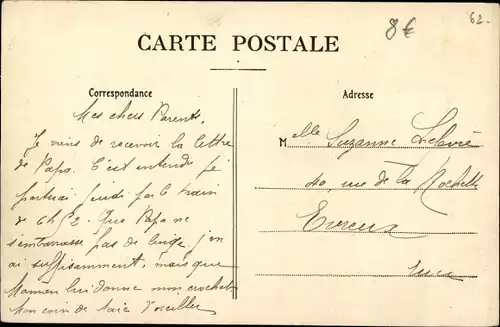 8€
62-
CARTE POSTALE
Correspondance
Adresse
Mes chers Parents,
Je viens de recevoir la lettre
de Papa. C'est entendu je
partirai jeudi par le train
de 6h52. Que Papa ne
s'embarrasse pas de linge j'en
ai suffisamment, mais que
Maman lui donne mon crochet
Mon coin de
Melle Suzanne Lefebvre
40, rue de la Rochette
Evreux
Eure